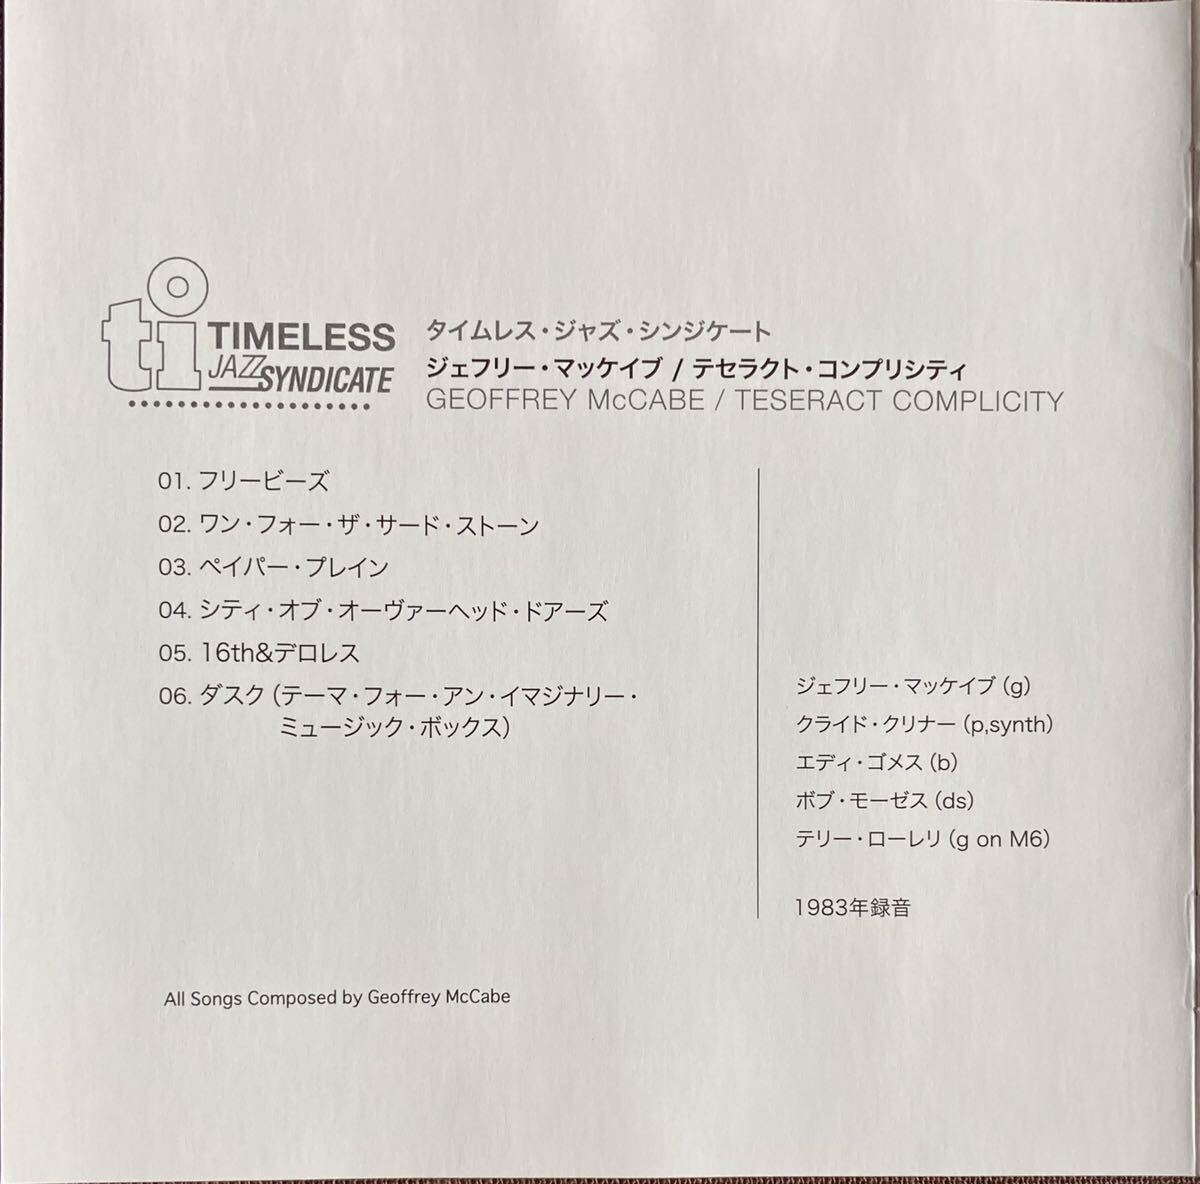 ti TIMELESS
JAZZ SYNDICATE
タイムレス・ジャズ・シンジケート
ジェフリー・マッケイブ / テセラクト・コンプリシティ
GEOFFREY McCABE / TESERACT COMPLICITY
01. フリービーズ
02. ワン・フォー・ザ・サード・ストーン
03. ペイパー・プレイン
04. シティ・オブ・オーヴァーヘッド・ドアーズ
05. 16th&デロレス
06. ダスク（テーマ・フォー・アン・イマジナリー・
ミュージック・ボックス）
ジェフリー・マッケイブ（g）
クライド・クリナー（p,synth）
エディ・ゴメス（b）
ボブ・モーゼス（ds）
テリー・ローレリ（g on M6）
1983年録音
All Songs Composed by Geoffrey McCabe